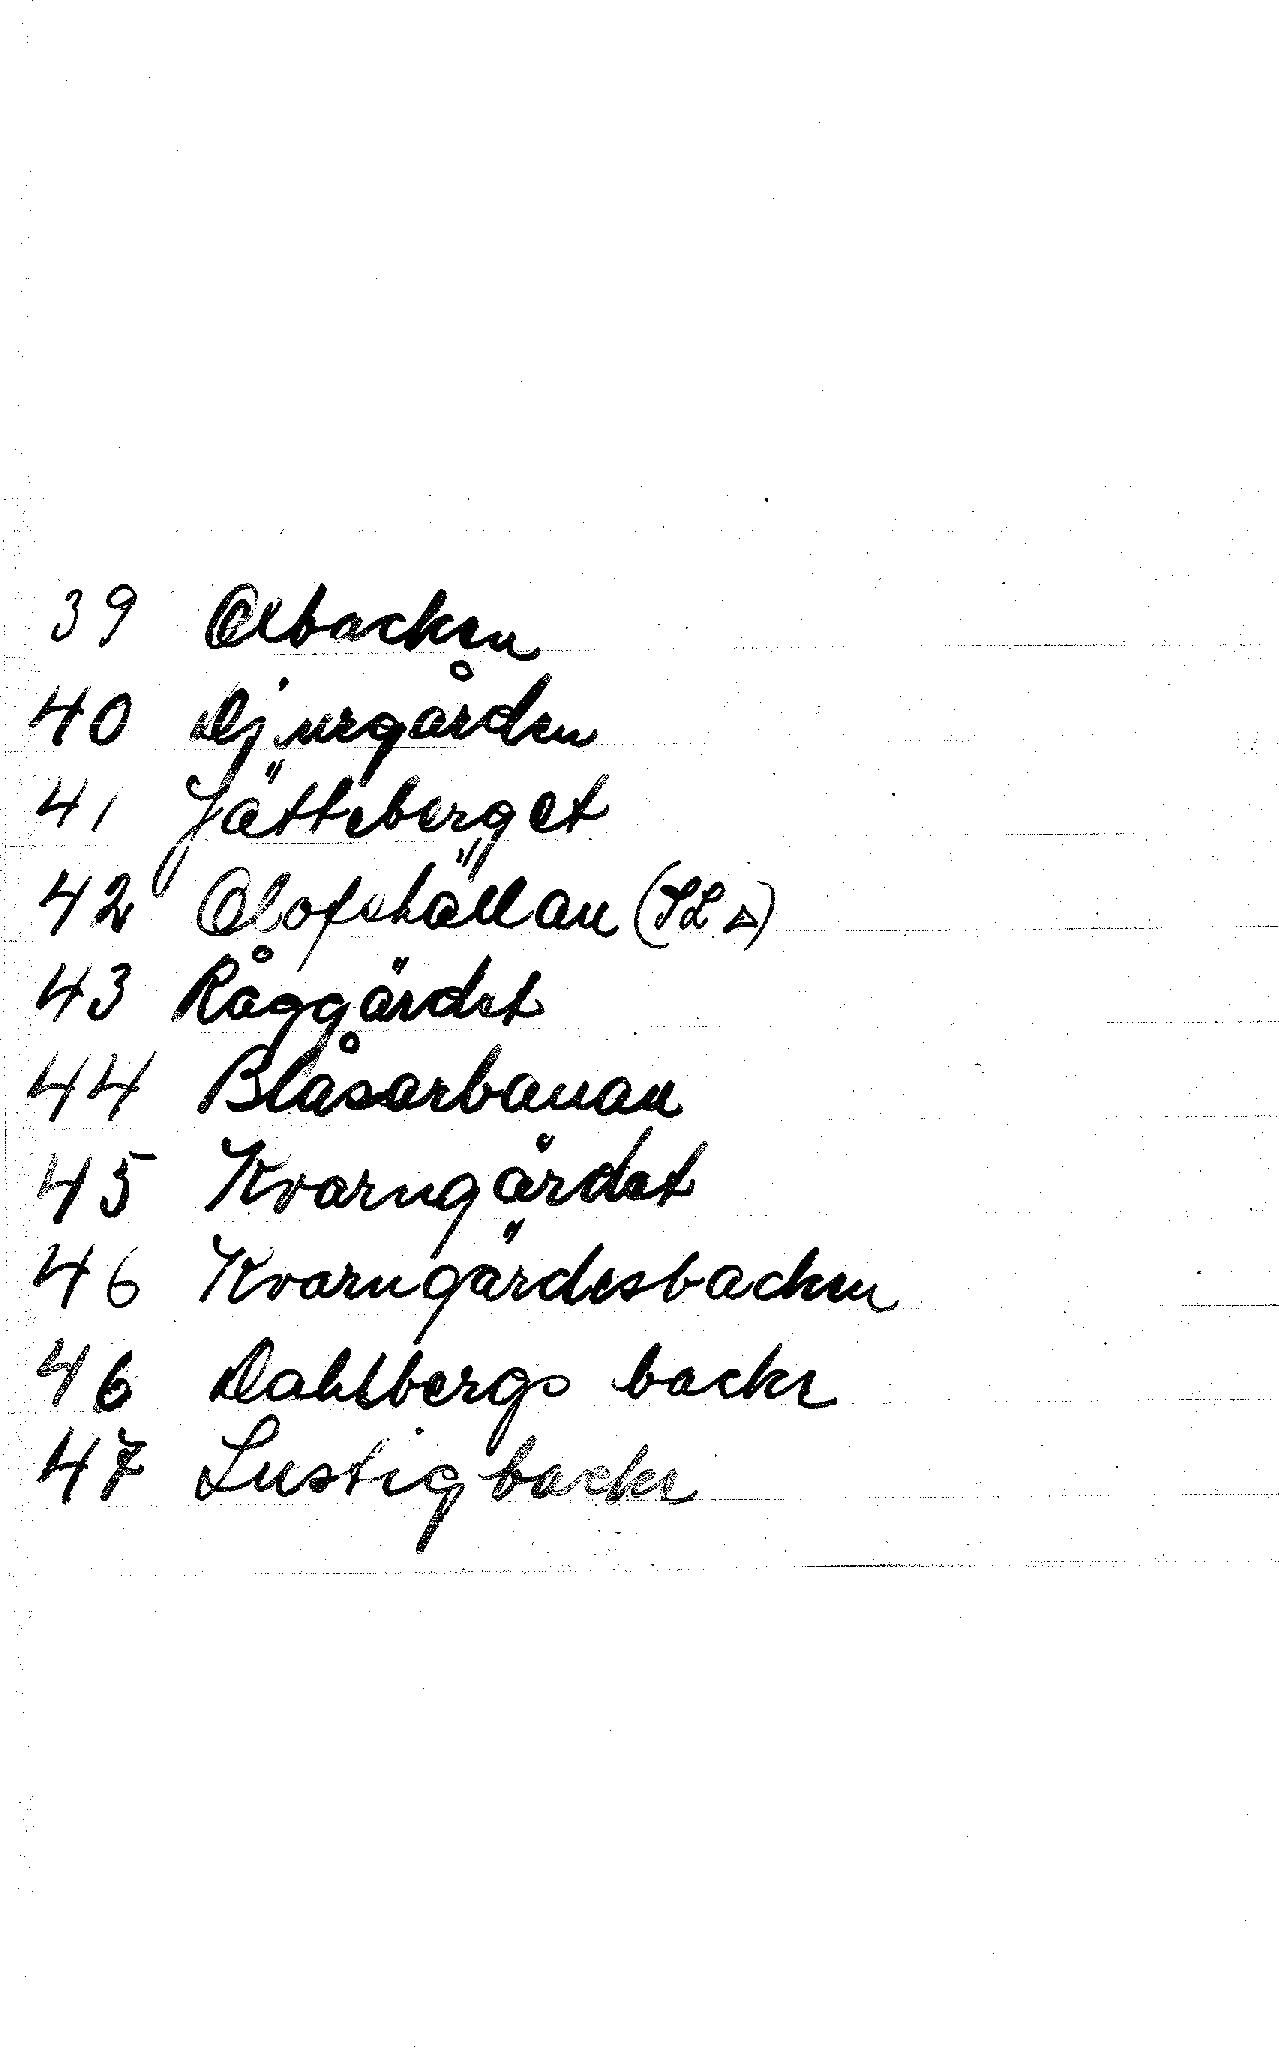 39 Olbacken
40 Djurgården
41 Jätteberget
42 Olofshällan (SL △)
43 Råggärdet
44 Blåsarbanan
45 Kvarngärdet
46 Kvarngärdesbacken
46 Dahlbergs backe
47 Lustigbacke